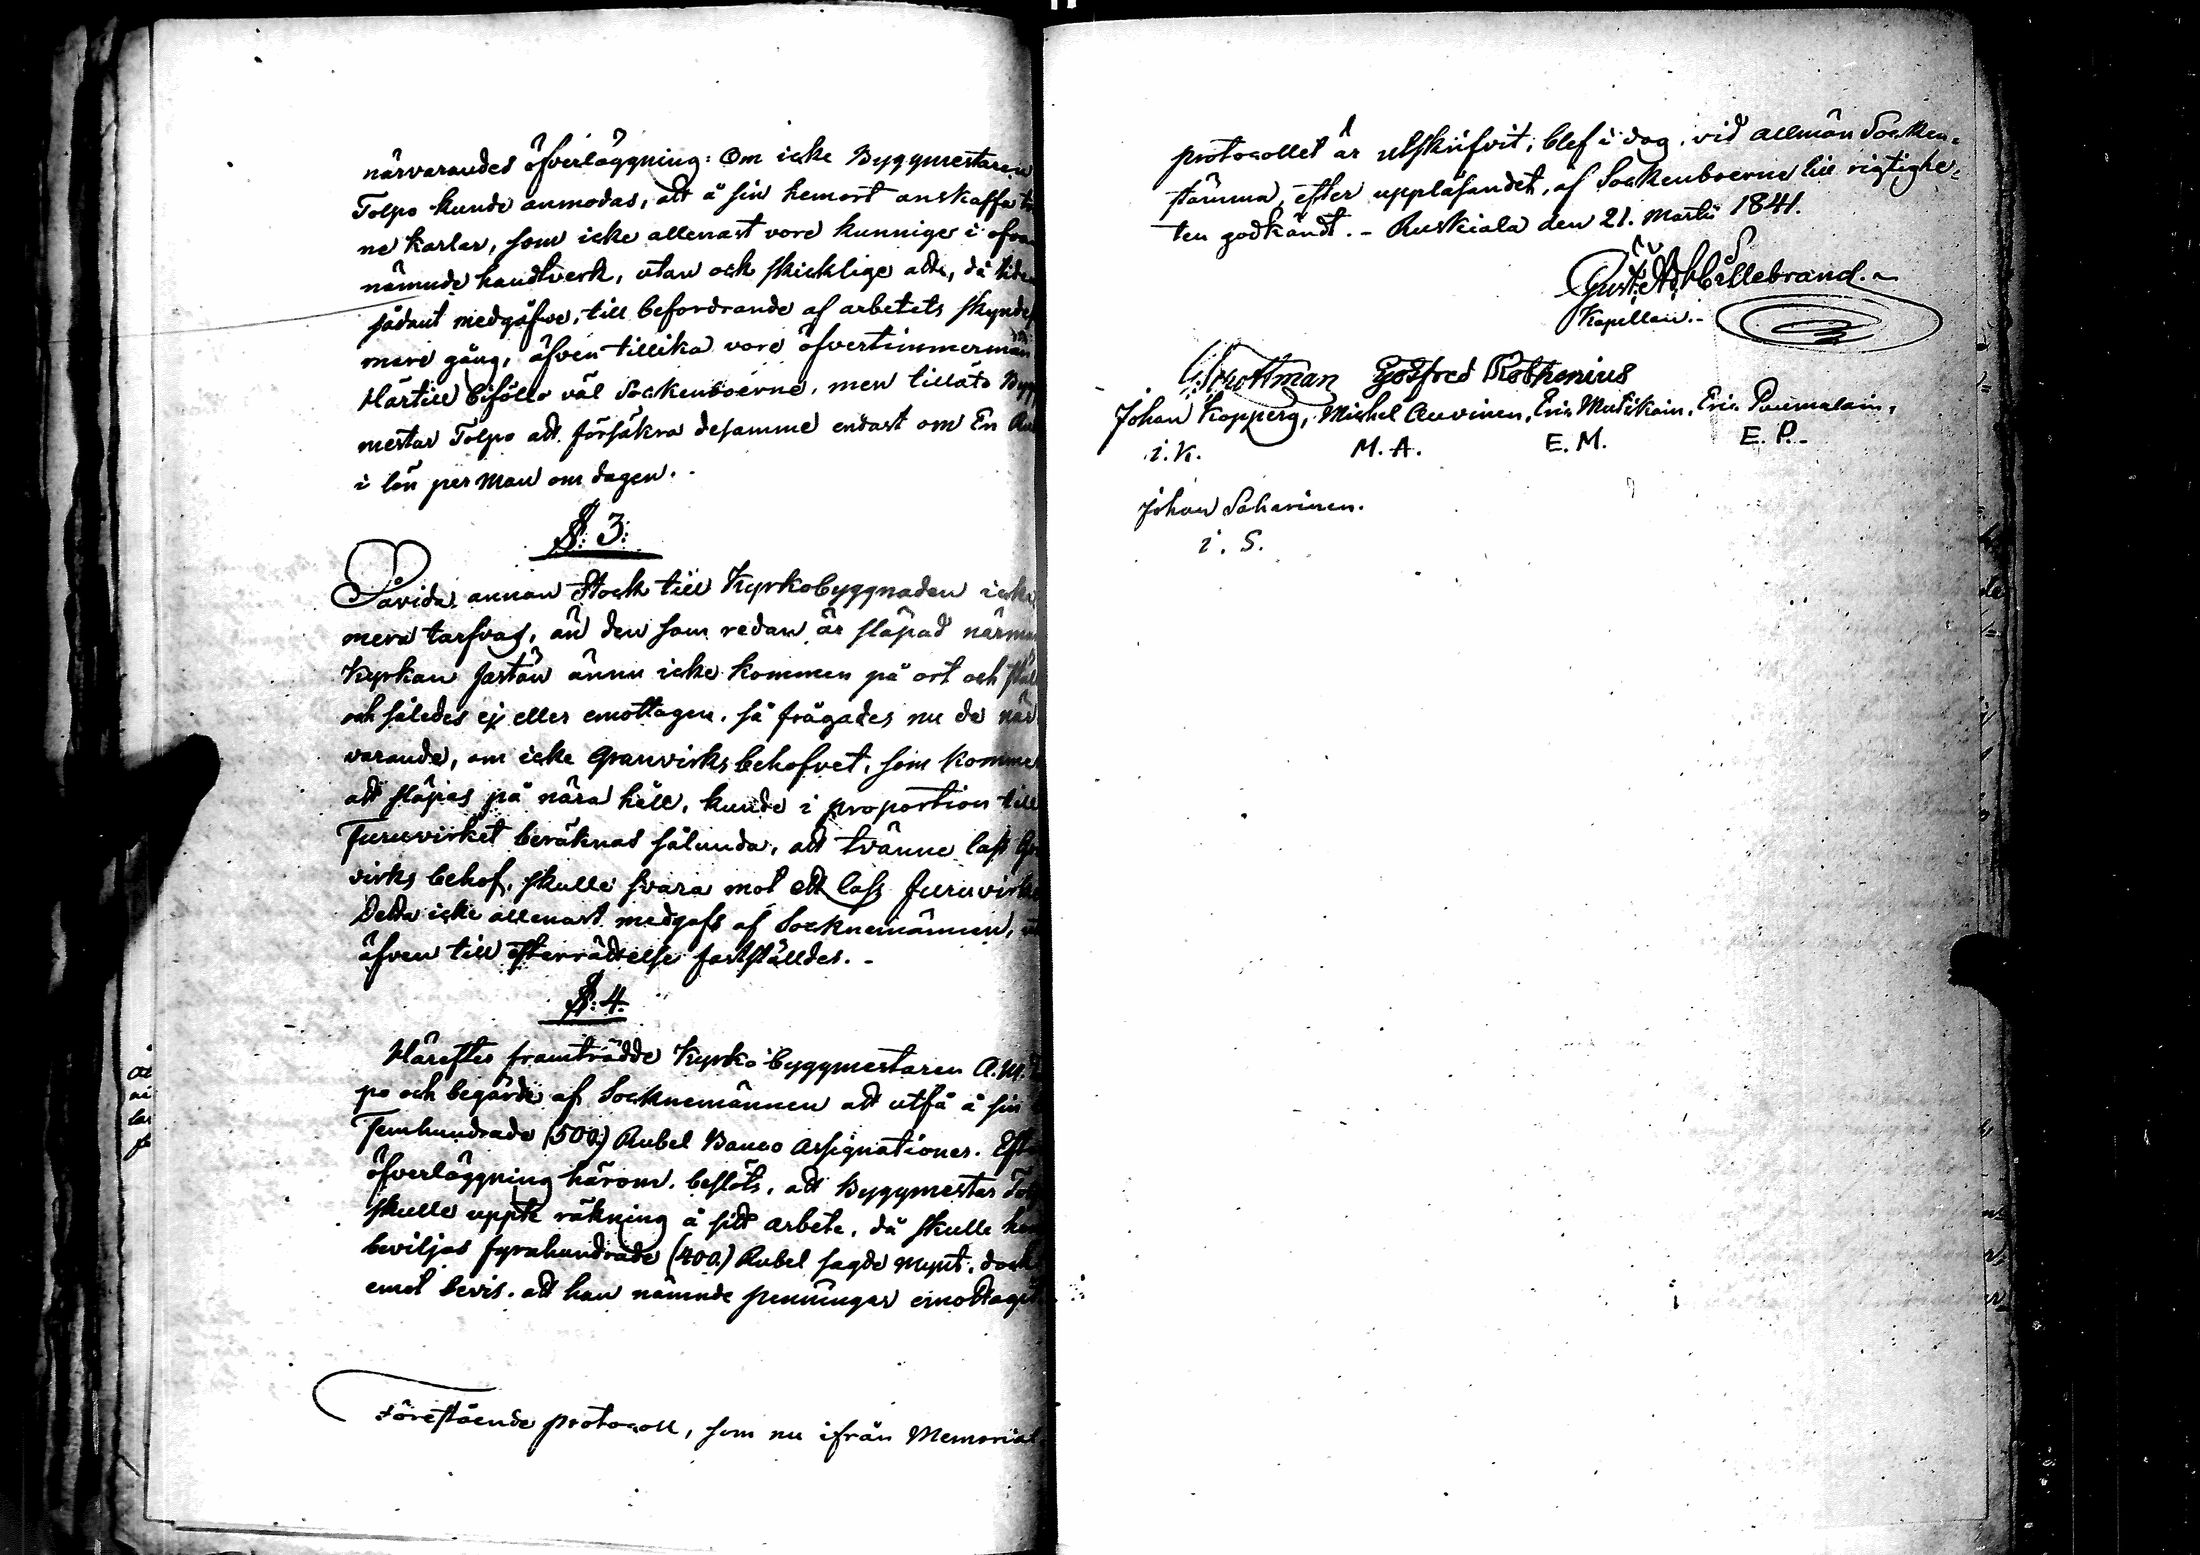 närvarandes öfverläggning: Om icke Byggmestaren
Tolpo kunde anmodas, att å sin hemort anskaffa
ne karlar, som icke allenast vore kunnige i
nämnde handtverk, utan och skicklige att, då
sådant medgåfve, till befordrande af arbetets
mare gång, äfven tillika vore öfvertimmermän
Härtill biföllo väl Sockenboerne, men tilläts
mestar Tolpo att försäkra desamme endast om En
i lön per Man om dagen.
§: 3:
Såvida annan Stock till Kyrkobyggnaden icke
mera tarfvas, än den som redan är släpad
Kyrkan fastän ännu icke kommen på ort och
och således ej eller emottagen, så frågades nu de när
varande, om icke Granvirks behofvet, som komme
att släpas på nära håll, kunde i proportion till
Furuvirket beräknas sålunda, att tvänne lass
virks behof, skulle svara mot ett lass furuvirke
Detta icke allenast medgafs af Socknemännen,
äfven till efterrättelse fastställdes. -
§: 4.
Härefter framträdde Kyrko byggmestaren A. M.
po och begärde af Socknemännen att utfå å sin
Femhundrade (500.) Rubel Banco Assignationer.
öfverläggning härom, beslöts, att Byggmestar
skulle uppte räkning å sitt arbete, då skulle
beviljas fyrahundrade (400.) Rubel sagde mynt, dock
emot bevis, att han nämnde penningar
Förestående protocoll, som nu ifrån Memorial
protocollet är utskrifvit, blef i dag, vid allmän Socken-
stämma, efter uppläsandet, af Sockenboerne till rigtighe-
ten godkändt. - Ruskiala den 21. Martii 1841.
Gust: Ad: Hillebrand. -
Kapellan. -
Gotfred Rothonius
Johan Kopperg, Michel Auvinen, Eric Mutikain, Eric Puumalain,
i. K. M. A. E. M. E. P. -
Johan Saharinen.
i. S.